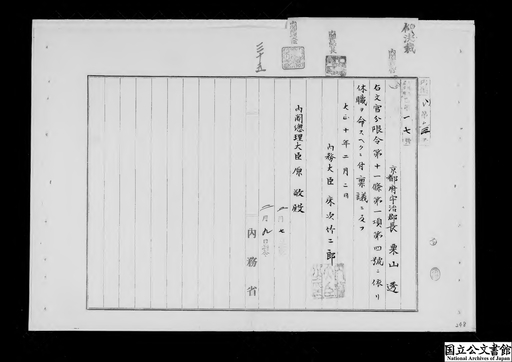 仰決裁
三十五
一七
京都府宇治郡長 栗山透
右文官分限令第十一條第一項第四號ニ依リ
休職ヲ命スヘクニ付稟議ニ及フ
大正十年二月二日
内務大臣 床次竹二郎
内閣總理大臣 原敬殿
二月七
二月九日
内務省
248
国立公文書館
National Archives of Japan